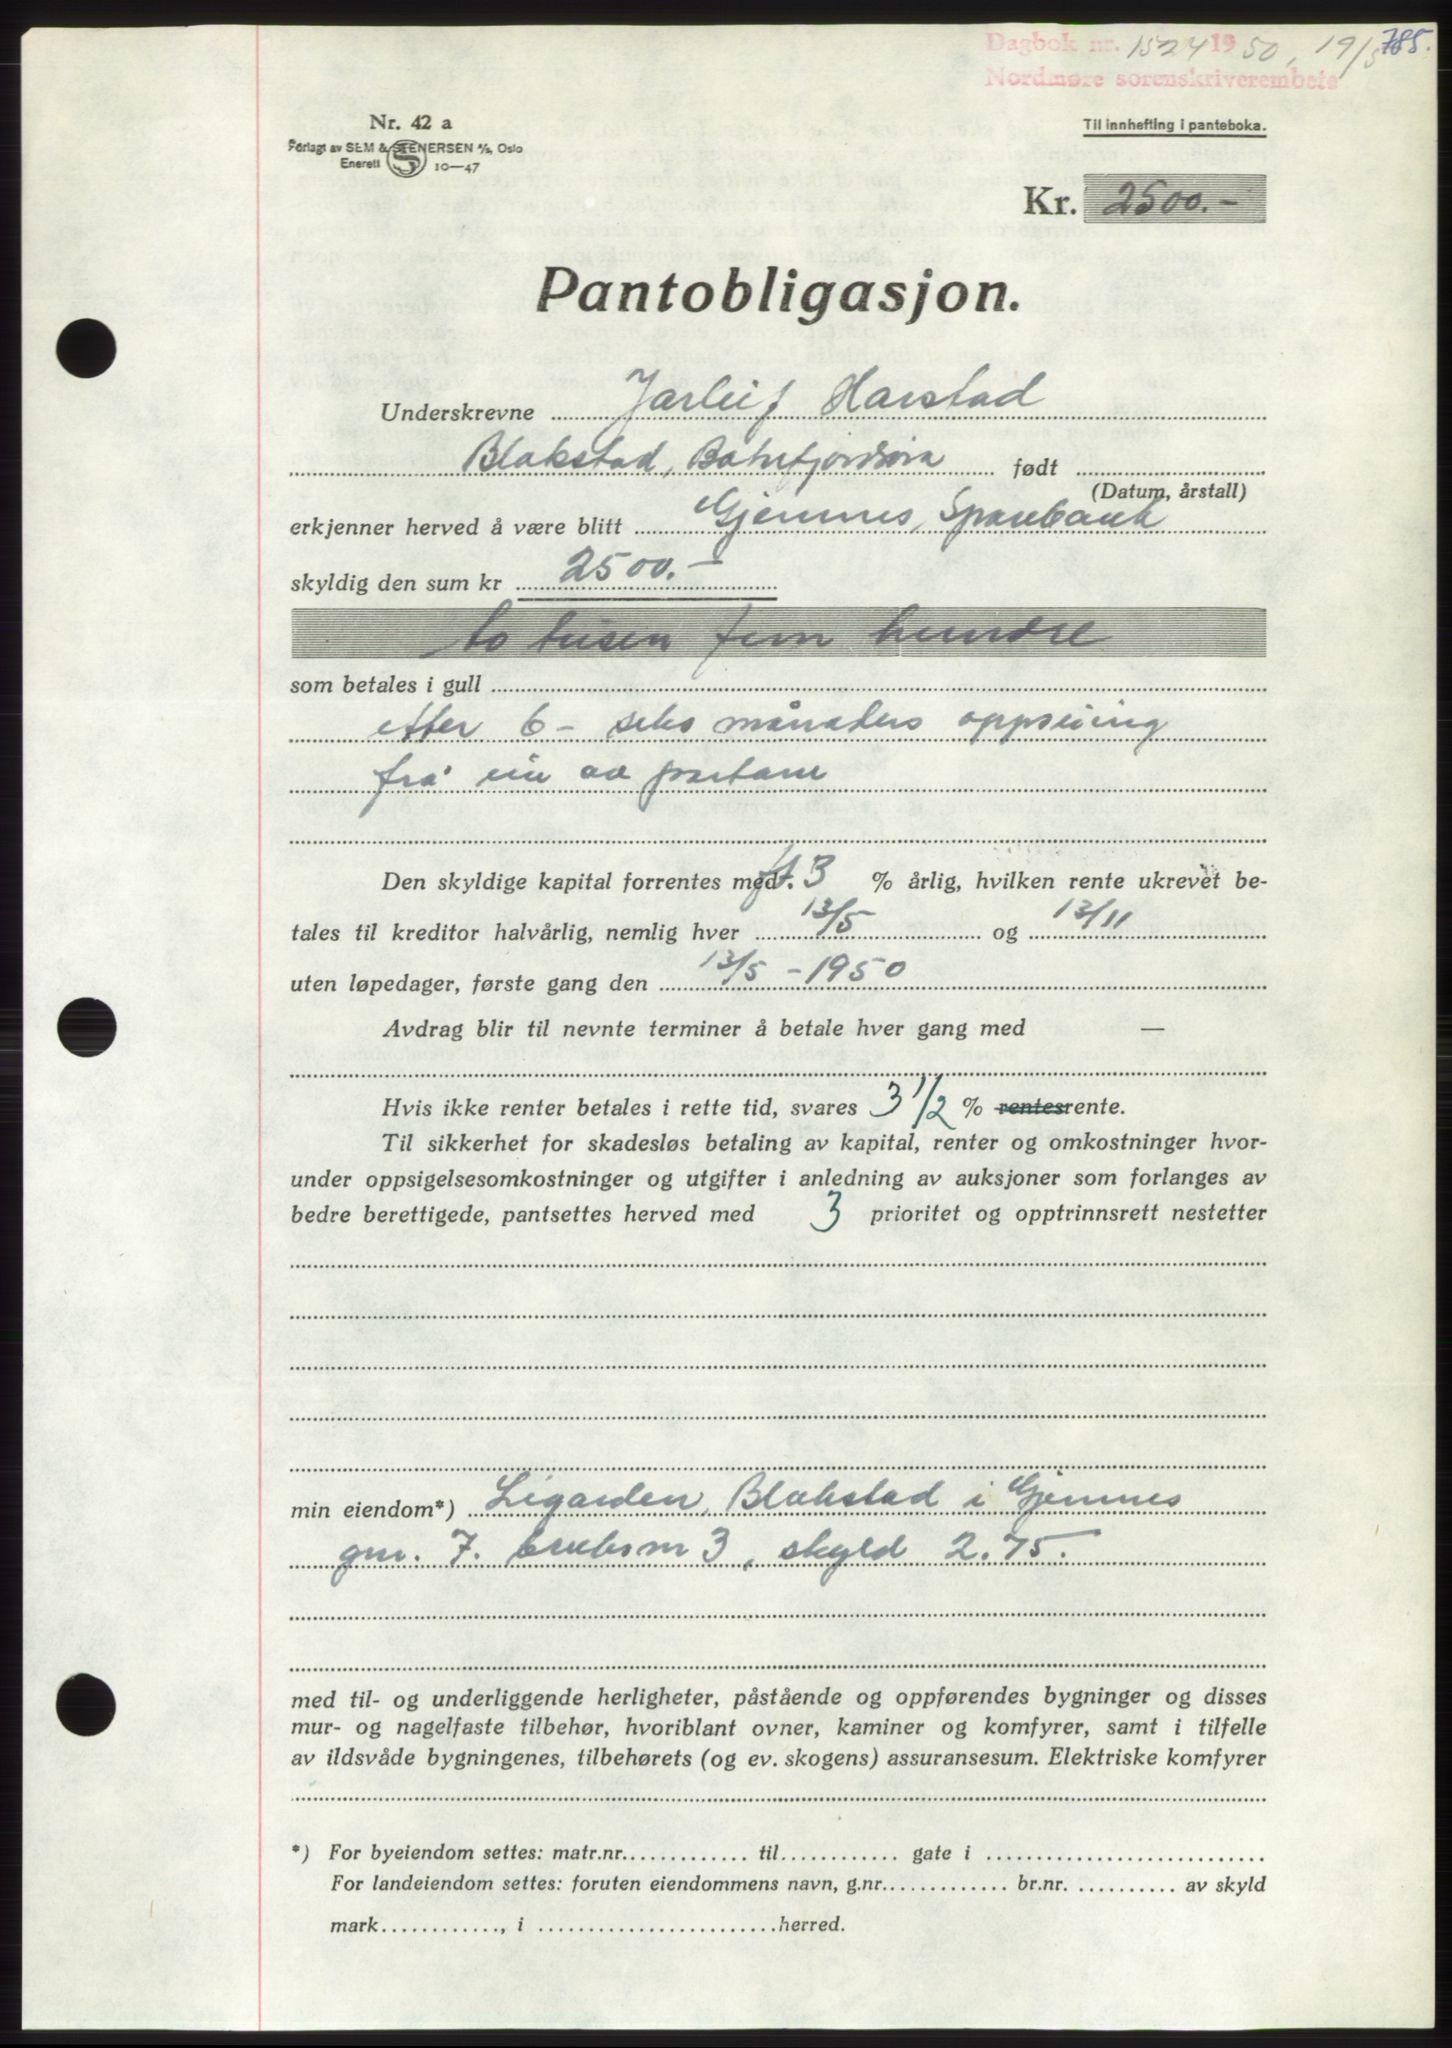 Dagbok nr. 1524 1950, 19/5 785.
Nordmøre sorenskriverembete
Nr. 42 a
Forlagt av SEM & STENERSEN A/S, Oslo
Enerett 10—47
Til innhefting i panteboka.
Kr. 2500.-
Pantobligasjon.
Underskrevne Jarleif Harstad
Blakstad, Batnfjordsøra født
(Datum, årstall)
erkjenner herved å være blitt Gjemnes Sparebank
skyldig den sum kr 2500.-
to tusen fem hundre
som betales i gull
etter 6- seks måneders oppseiing
frå ein av partane
Den skyldige kapital forrentes med f.t. 3 % årlig, hvilken rente ukrevet be-
tales til kreditor halvårlig, nemlig hver 13/5 og 13/11
uten løpedager, første gang den 13/5 - 1950
Avdrag blir til nevnte terminer å betale hver gang med —
Hvis ikke renter betales i rette tid, svares 3 1/2 % rentesrente.
Til sikkerhet for skadesløs betaling av kapital, renter og omkostninger hvor-
under oppsigelsesomkostninger og utgifter i anledning av auksjoner som forlanges av
bedre berettigede, pantsettes herved med 3 prioritet og opptrinnsrett nestetter
min eiendom*) Ligarden, Blakstad i Gjemnes
gnr. 7. bruksnr 3, skyld 2.75.
med til- og underliggende herligheter, påstående og oppførendes bygninger og disses
mur- og nagelfaste tilbehør, hvoriblant ovner, kaminer og komfyrer, samt i tilfelle
av ildsvåde bygningenes, tilbehørets (og ev. skogens) assuransesum. Elektriske komfyrer
*) For byeiendom settes: matr.nr............. til............ gate i ............................
For landeiendom settes: foruten eiendommens navn, g.nr............. br.nr. ........... av skyld
mark............, i ............................herred.